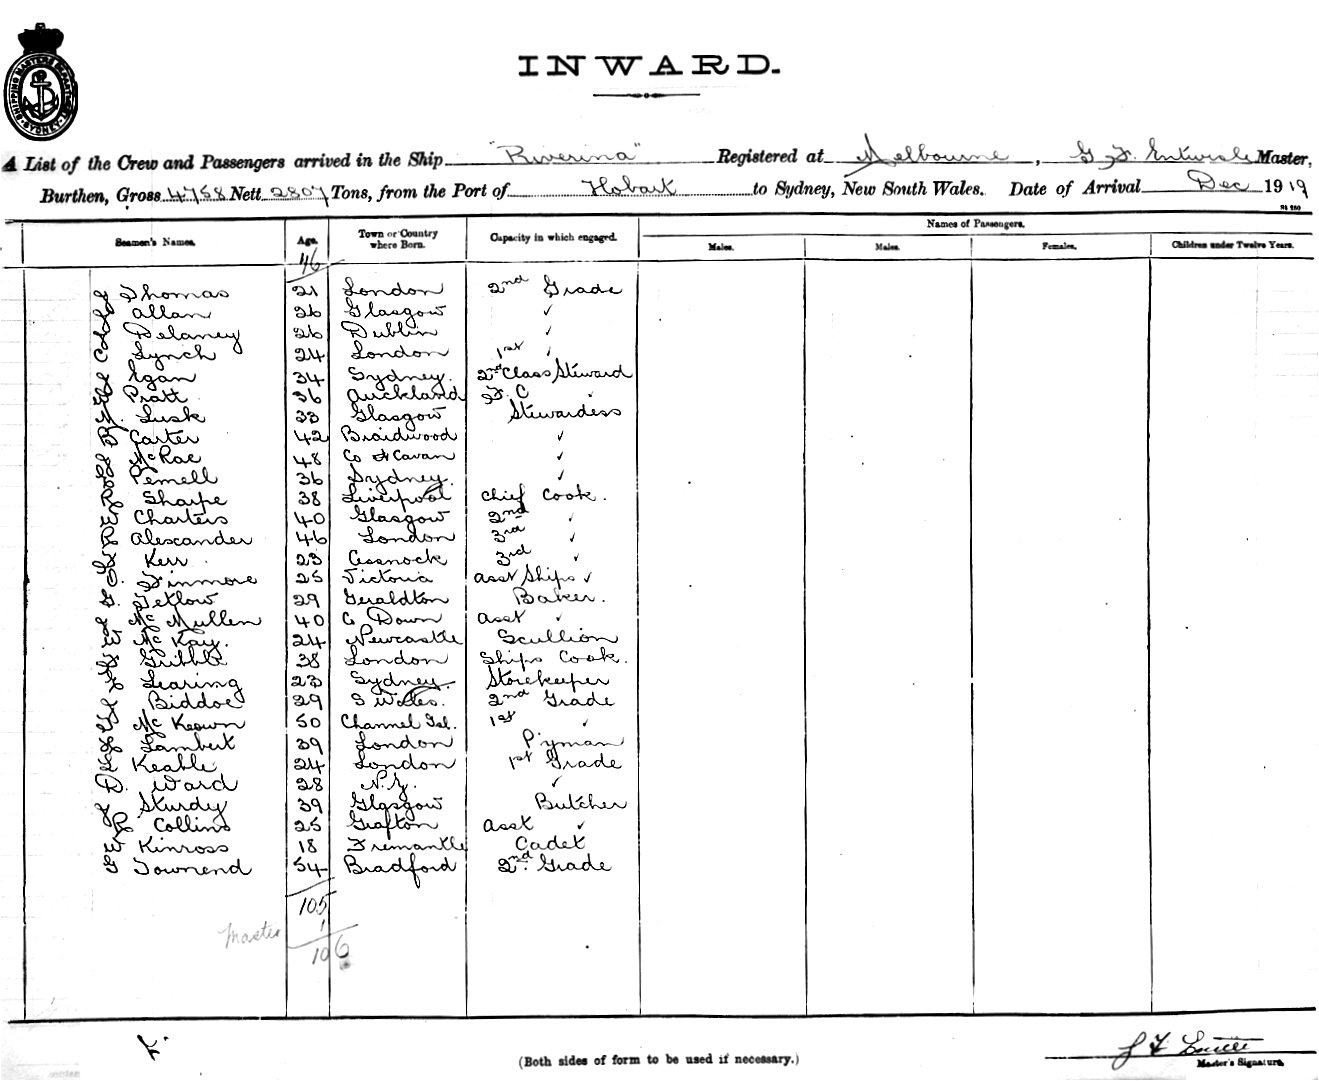 SHIPPING MASTERS DEPARTMENT SYDNEY
INWARD.
A List of the Crew and Passengers arrived in the Ship "Riverina" Registered at Melbourne, G. F. Entwisle Master,
Burthen, Gross 4758 Nett 2807 Tons, from the Port of Hobart to Sydney, New South Wales. Date of Arrival Dec 1919
Seamen's Names. Age. Town or Country where Born. Capacity in which engaged. Names of Passengers.
Males. Males. Females. Children under Twelve Years.
46
Thomas 21 London 2nd Grade
Allan 26 Glasgow ✓
Delaney 26 Dublin ✓
Lynch 24 London 1st ✓
Egan 34 Sydney. 2nd Class Steward
Pratt 36 Auckland C ✓
Lusk 33 Glasgow Stewardess
Carter 42 Braidwood ✓
McRae 48 Co Cavan ✓
Pemell 36 Sydney. ✓
Sharpe 38 Liverpool Chief Cook.
Charters 40 Glasgow 2nd ✓
Alexander 46 London 3rd ✓
Kerr 23 Cessnock 3rd ✓
Finmore 25 Victoria Asst Ships ✓
Tetlow 29 Geraldton Baker.
McMullen 40 Co Down Asst ✓
McKay. 24 Newcastle Scullion
Gribble 38 London Ships Cook.
Learing 23 Sydney Storekeeper
Biddoe 29 S Wales. 2nd Grade
McKeown 50 Channel Isl. 1st ✓
Lambert 39 London P'yman
Keable 24 London 1st Grade
D. Ward 28 N.Z. ✓
Sturdy 39 Glasgow Butcher
Collins 25 Grafton Asst ✓
Kinross 18 Fremantle Cadet
Townend 54 Bradford 2nd. Grade
105
Master 1
106
(Both sides of form to be used if necessary.)
Master's Signature.